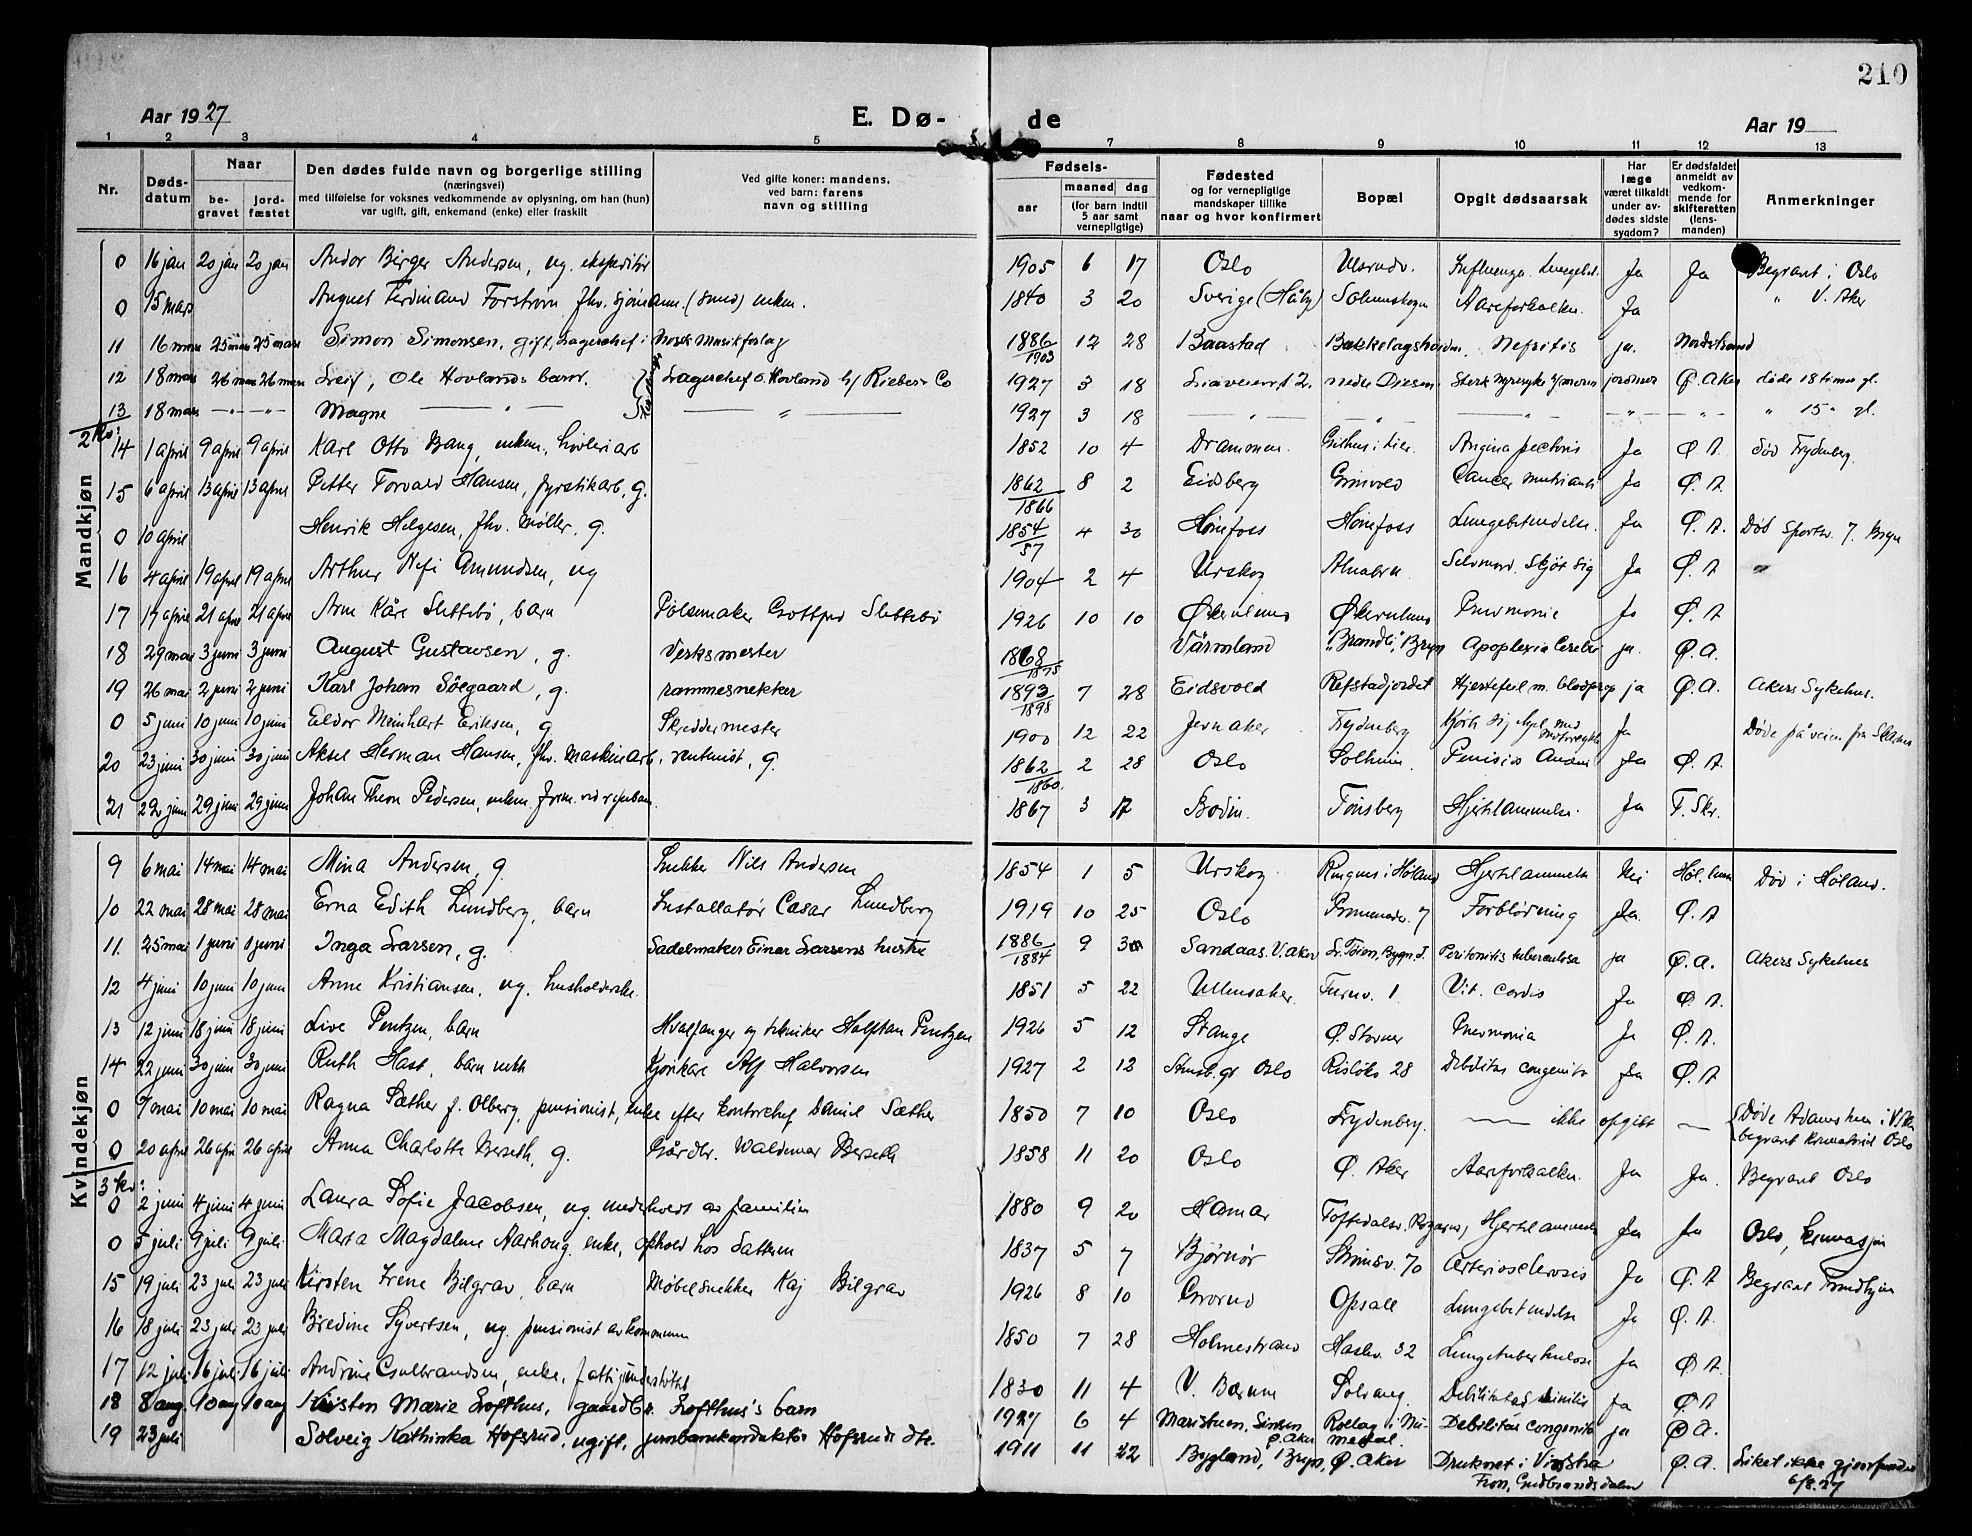 210
Aar 1927
E. Dø-
de
Aar 19
1 2 3 4 5 7 8 9 10 11 12 13
Nr.
Døds-
datum
Naar
be-
gravet
jord-
fæstet
Den dødes fulde navn og borgerlige stilling
(næringsvei)
med tilføielse for voksnes vedkommende av oplysning, om han (hun)
var ugift, gift, enkemand (enke) eller fraskilt
Ved gifte koner: mandens,
ved barn: farens
navn og stilling
Fødsels-
aar
maaned dag
(for barn indtil
5 aar samt
vernepligtige)
Fødested
og for vernepligtige
mandskaper tillike
naar og hvor konfirmert
Bopæl
Opgit dødsaarsak
Har
læge
været tilkaldt
under av-
dødes sidste
sygdom?
Er dødsfaldet
anmeldt av
vedkom-
mende for
skifteretten
(lens-
manden)
Anmerkninger
Mandkjøn
0 16 jan 20 jan 20 jan Andor Birger Andersen, ug. ekspeditør 1905 6 17 Oslo Ulvendv. Influenza Ja Ja Begravet i Oslo
0 15 mars August Ferdinand Forstrøm fhv. Sjømann. (svensk) enkem. 1840 3 20 Sverige Aareforkalkn. Ja " V. Aker
11 16 mars 25 mars 25 mars Simon Simonsen, gift, Lagerchef i Norsk Musikforlag 1886/1903 12 28 Baastad Bækkelagshøiden Nefritis ja. Nordstrand
12 18 mars 26 mars 26 mars Leif, Ole Hovlands barn. Lagerchef O. Hovland h/ Rieber & Co 1927 3 18 nedre Disen jordmor Ø. Aker døde 18 timer gl.
13 18 mars -"- -"- Magne -"- -"- 1927 3 18 -"- -"- -"- -"- " 15 " gl.
2 kv:
14 1 april 9 april 9 april Karl Otto Bang, enkem., høvleriarb 1852 10 4 Drammen Gilhus i Lier Angina pectoris Ja Ø. A. død Frydenberg.
15 6 april 13 april 13 april Petter Torvald Hansen, fyrstikarb, g. 1862/1866 8 2 Eidsberg Grinvold Cancer Ja Ø. A.
0 10 april Henrik Helgesen, fhv. Møller, g. 1854/57 4 30 Hønefoss Hønefoss Lungebetendelse. Ja Ø. A. Død Sportsv. 7. Bryn
16 4 april 19 april 19 april Arthur Nefi Amundsen, ug 1904 2 4 Urskog Alnabru Selvmord. Skjøt sig Ja Ø. A "
17 17 april 21 april 21 april Arne Kåre Slettebø, barn Pølsemaker Gottfred Slettebø 1926 10 10 Økernlund Økernlund Pnevmonie Ja Ø. A.
18 29 mai 3 juni 3 juni August Gustavsen, g. Verksmester 1868/1875 Värmland "Brandli", Bryn Apoplexia Cerebri ja. Ø. A.
19 26 mai 2 juni 2 juni Karl Johan Söegaard, g. rammesnekker 1893/1898 7 28 Eidsvold Refstadjordet Hjertefeil m. blodprop ja Ø. A. Akers Sykehus.
0 5 juni 10 juni 10 juni Eldor Meinhart Eriksen, g Skreddermester 1900 12 22 Jevnaker Frydenberg Kjørte sig ihjel med motorsykkel Ja Døde på veien fra
20 23 juni 30 juni 30 juni Aksel Herman Hansen, fhv. Maskinarb., rentenist, g. 1862/1860. 2 28 Oslo Solheim. Ja Ø. A.
21 22 juni 29 juni 29 juni Johan Theon Pedersen, enkem. 1867 3 17 Bodin. Tønsberg Hjertelammelse. Ja T. Skr.
Kvindekjøn
9 6 mai 14 mai 14 mai Mina Andersen, g Snekker Nils Andersen 1854 1 5 Urskog Ringnes i Høland Hjertelammelse Nei Høl. lensm Død i Høland.
10 22 mai 28 mai 28 mai Erna Edith Lundberg, barn Installatør Cæsar Lundberg 1919 10 25 Oslo Promenadev. 7 Forblødning Ja. Ø. A
11. 25 mai 1 juni 1 juni Inga Larsen, g. Sadelmaker Einar Larsens hustru 1886/1884 9 30 Sandaas. V. Aker Lr. Tøien, Bygn. I. Peritonitis tuberculosa ja Ø. A. Akers Sykehus
12 4 juni 10 juni 10 juni Anne Kristiansen, ug. husholderske. 1851 5 22 Ullensaker. Furuv. 1 Vit. cordis Ja Ø. A.
13 12 juni 18 juni 18 juni Live Pentzen, barn Hvalfanger og tekniker Halfdan Pentzen 1926 5 12 Stange Ø. Stovner Pnevmonia Ja Ø. A.
14 22 juni 30 juni 30 juni Ruth Hast, barn uekte Kjørekar Alf Halvorsen 1927 2 12 Oslo Risløkv 28 Debilitas congenita Ja Ø. A
0 7 mai 10 mai 10 mai Ragna Sæther f. Olberg, pensionist, enke efter kontorchef Daniel Sæther 1850 7 10 Oslo Frydenberg. — ikke opgitt — Døde i V. Aker begravet Krematoriet Oslo
0 20 april 26 april 26 april Anna Charlotte Berseth, g. Gårdbr. Waldemar Berseth 1858 11 20 Oslo Ø. Aker Aareforkalkn. Ja Ja. Begravet Oslo
3 kv:
0 2 juni 4 juni 4 juni Laura Sofie Jacobsen, ug. underholdt av familien 1880 9 20 Hamar Hjertelammelse Ja Ja Oslo, kremasjon
0 5 juli 9 juli 9 juli Marta Magdalene Aarhoug. enke, ophold hos datteren 1837 5 7 Bjørnør 70 Arteriosclerosis Ja Ø. A Begravet Trondhjem
15 19 juli 23 juli 23 juli Kirsten Irene Bilgrav, barn Møbelsnekker Kaj Bilgrav 1926 8 10 Grorud Opsall Lungebetendelse Ja Ø. A.
16 18 juli 23 juli 23 juli Bredine Syvertsen, ug. pensionist av kommunen 1850 7 28 Holmestrand Haslev. 32 Lungetuberkulose Ja Ø A
17 12 juli 16 juli 16 juli Andrine Gulbrandsen, enke, fattigunderstøttet 1830 11 4 V. Bærum Solvang. Debilitas senilis Ja Ø A
18 8 aug. 10 aug 10 aug Kirsten Marie Lofthus, gaardbr. Lofthus's barn 1927 6 4 Maristuen, Sinsen Ø. Aker Rollag i Numedal. Debilitas congenita ja Ø A.
19 23 juli Solveig Kathinka Hofsrud, ugift, jernbanekonduktør Hofsruds dtr. 1911 11 22 Bygland, Bryn, Ø. Aker Druknet i Vinstra Ø. A. Liket ikke gjenfundet
Fron, Gudbrandsdalen 6/8.27